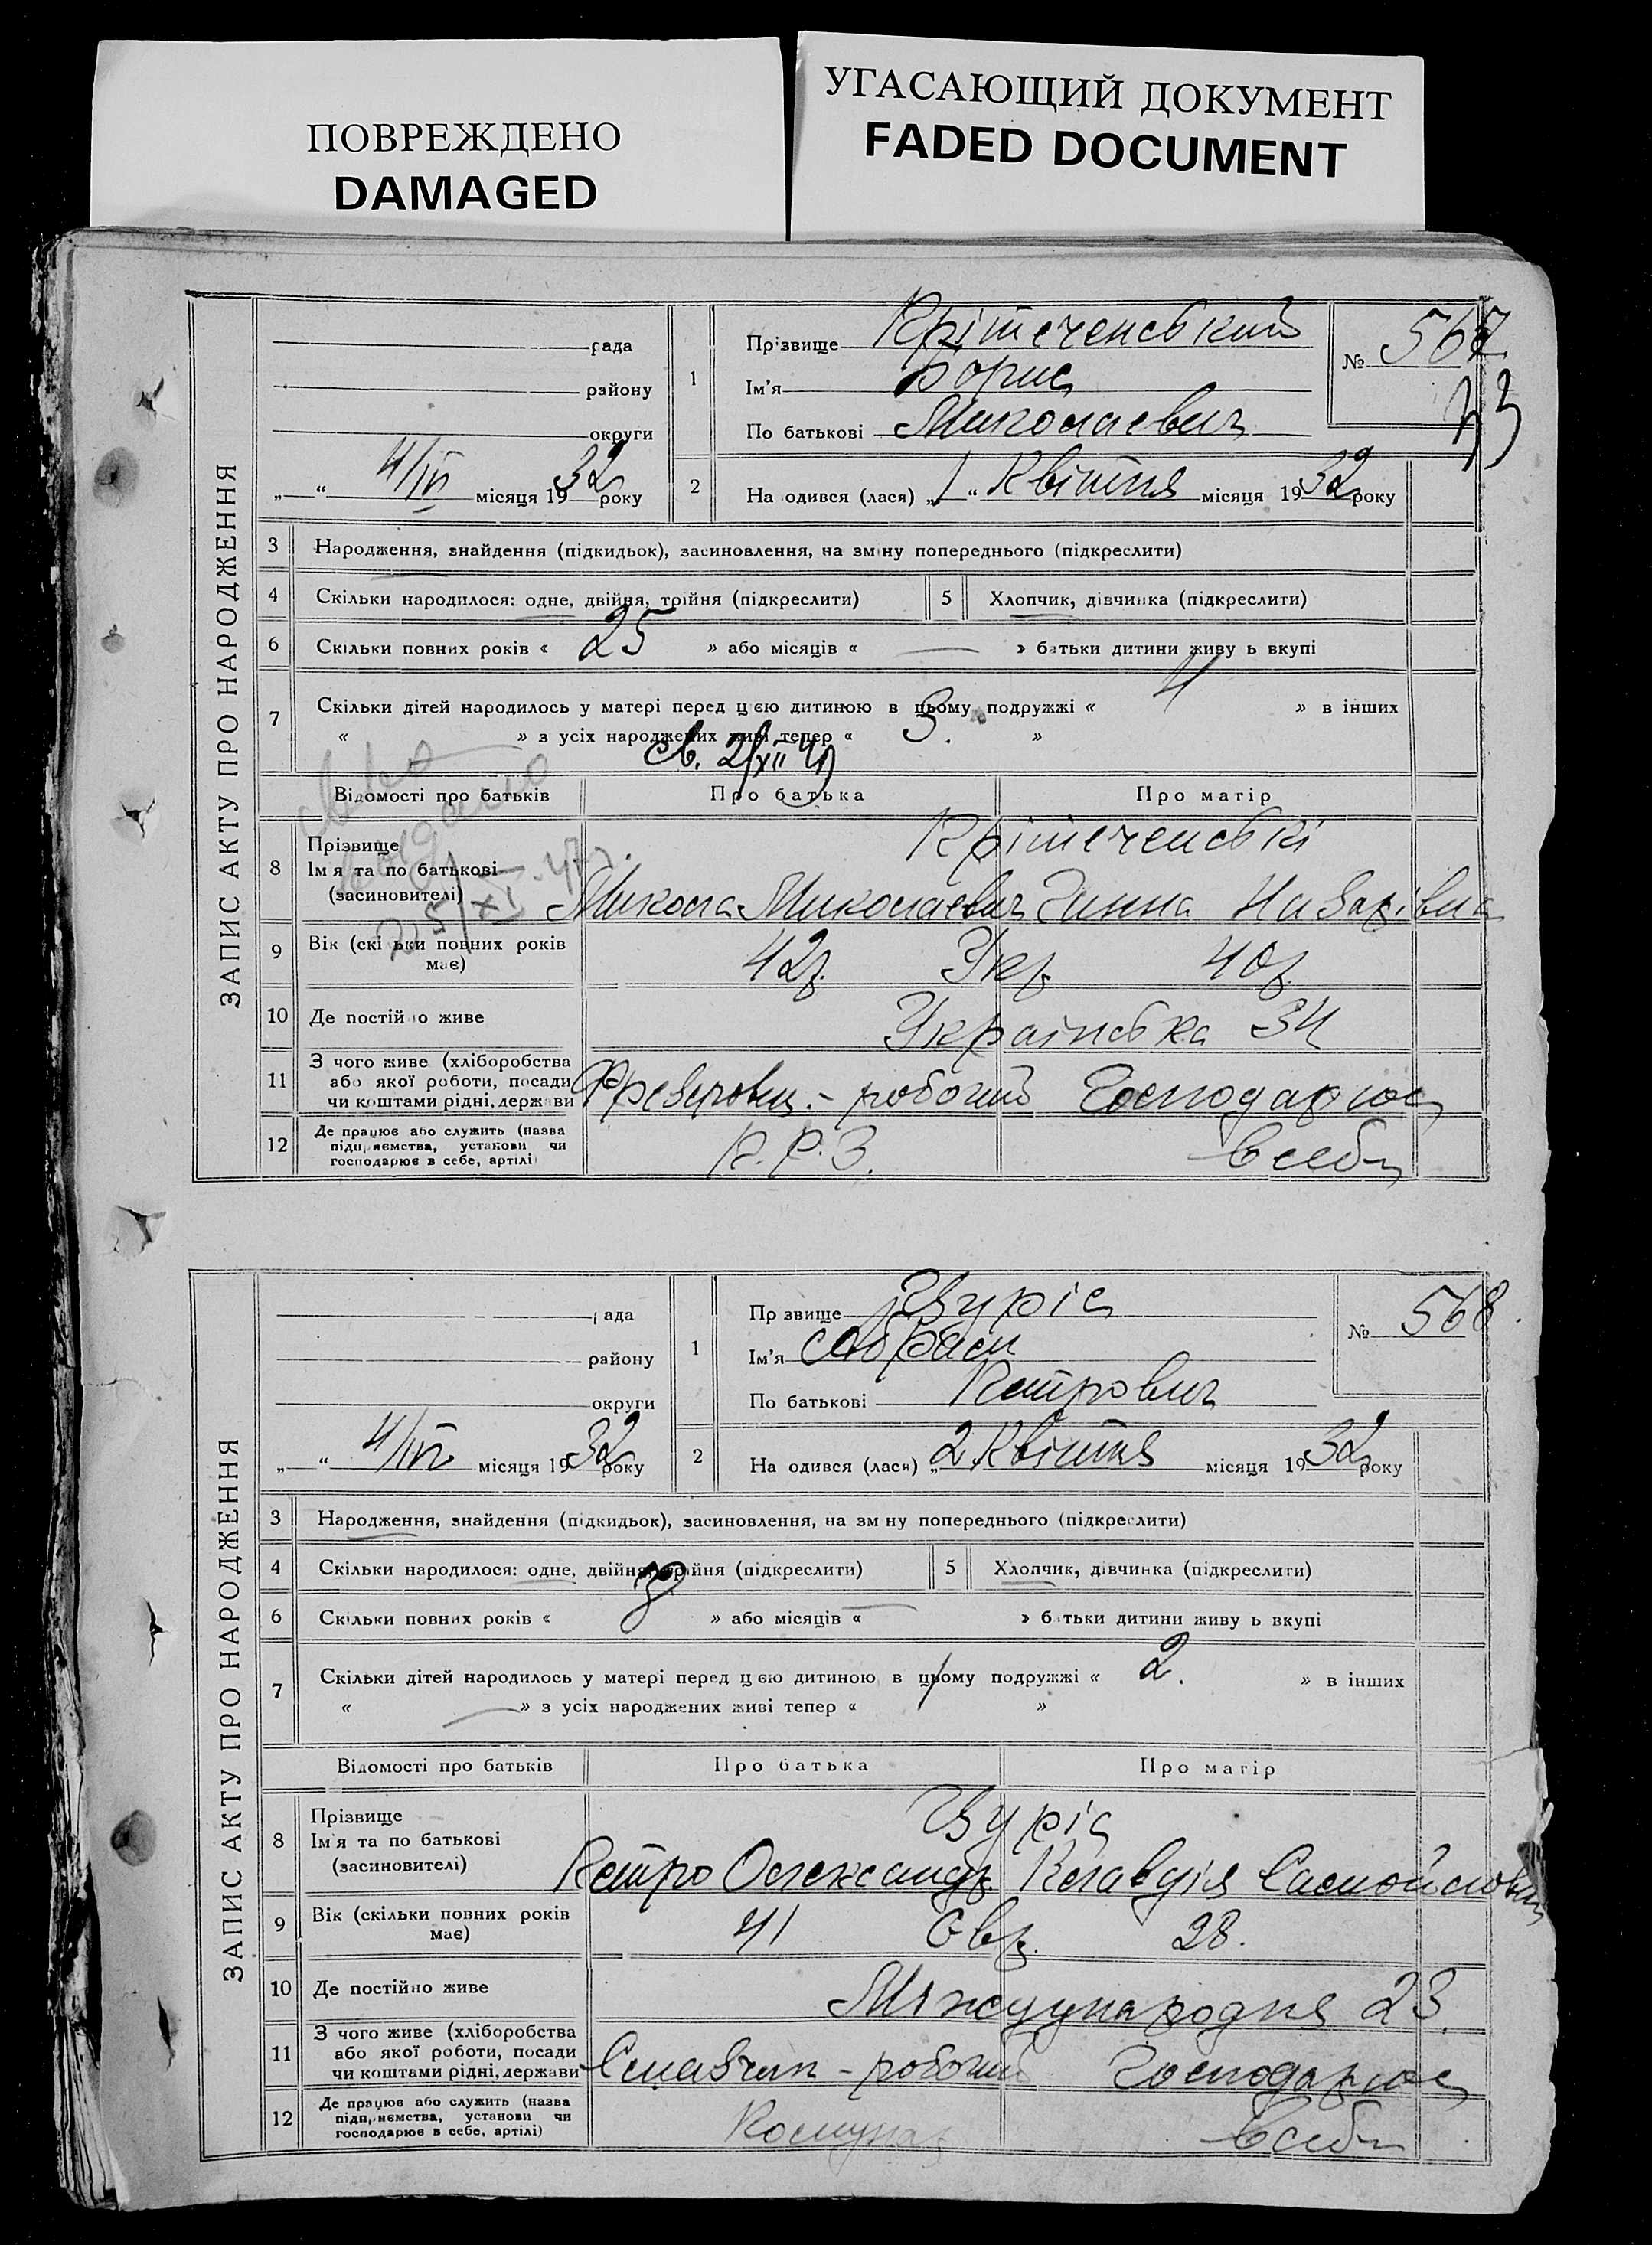 ПОВРЕЖДЕНО
DAMAGED
УГАСАЮЩИЙ ДОКУМЕНТ
FADED DOCUMENT
ЗАПИС АКТУ ПРО НАРОДЖЕННЯ
рада
району
округи
„ “ 4/IV місяця 1932 року
1
Прізвище Крітеченський
Ім'я Борис
По батькові Миколаевич
№ 567
2
На одився (лася) „1“ Квітня місяця 1932 року
3 Народження, знайдення (підкидьок), засиновлення, на зміну попереднього (підкреслити)
4 Скільки народилося: одне, двійня, трійня (підкреслити) 5 Хлопчик, дівчинка (підкреслити)
6 Скільки повних років « 25 » або місяців « — » батьки дитини живу ь вкупі
7 Скільки дітей народилось у матері перед цією дитиною в цьому подружжі « 4 » в інших
« » з усіх народжених живі тепер « 3. »
св. 2/XII 47
Відомості про батьків Про батька Про матір
8 Прізвище Крітеченські
Ім'я та по батькові
(засновителі) Микола Миколаевич Ганна Назарівна
25/XI-47р.
9 Вік (скі ьки повних років має) 42р. Укр. 40р.
10 Де постійно живе Українська 34
11 З чого живе (хліборобства
або якої роботи, посади
чи коштами рідні, держави робочий Господарює
12 Де працює або служить (назва
підприємства, установи чи
господарює в себе, артілі) К.Р.З. в себе
ЗАПИС АКТУ ПРО НАРОДЖЕННЯ
ада
району
округи
„ “ 4/IV місяця 1932 року
1
Пр звище Гвуріс
Ім'я Абрам
По батькові Петрович
№ 568
2
На одився (лася) „2 Квітня місяця 1932 року
3 Народження, знайдення (підкидьок), засиновлення, на зм ну попереднього (підкреслити)
4 Скільки народилося: одне, двійня, трійня (підкреслити) 5 Хлопчик, дівчинка (підкреслити)
6 Скільки повних років « » або місяців « — » б тьки дитини живу ь вкупі
7 Скільки дітей народилось у матері перед цією дитиною в цьому подружжі « 2. » в інших
« — » з усіх народжених живі тепер « 1 »
Відомості про батьків Про батька Про матір
8 Прізвище Гвуріс
Ім'я та по батькові
(засиновителі) Петро Олександр. Клавдія
9 Вік (скільки повних років має) 41 Євр. 28.
10 Де постійно живе Международня 23.
11 З чого живе (хліборобства
або якої роботи, посади
чи коштами рідні, держави робочий Господарює
12 Де працює або служить (назва
підприємства, установи чи
господарює в себе, артілі) Комунар в себе